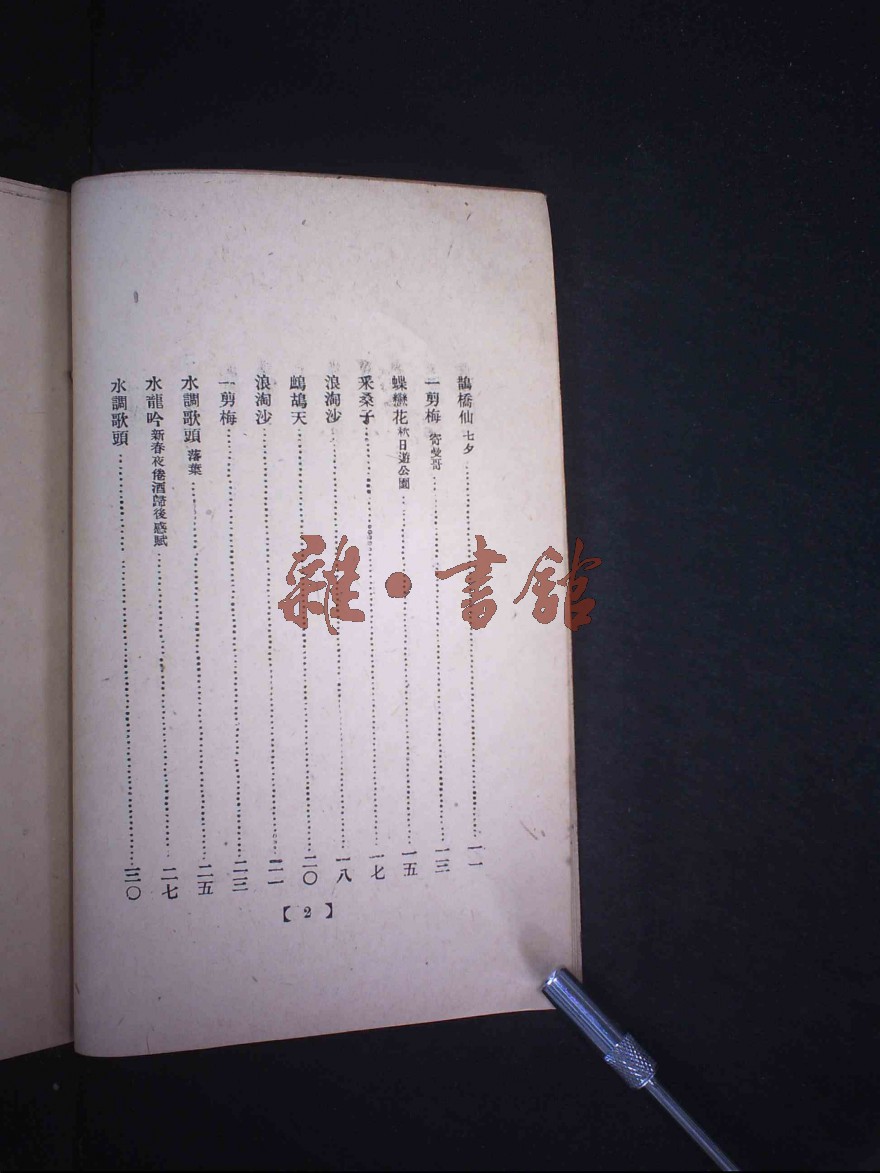 鵲橋仙 七夕……一一
一剪梅 寄雙哥……一三
蝶戀花 秋日遊公園……一五
采桑子……一七
浪淘沙……一八
鷓鴣天……二〇
浪淘沙……二一
一剪梅……二三
水調歌頭 落葉……二五
水龍吟 新春夜倦酒歸後感賦……二七
水調歌頭……三〇
【2】
雜·書館